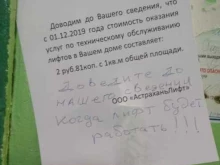 Доводим до Вашего сведения, что
с 01.12.2019 года стоимость оказания
услуг по техническому обслуживанию
лифтов в Вашем доме составляет
2 руб.81коп. с 1кв.м общей площади.
Доведите до
нашего сведения
ООО «АстраханьЛифт»
Когда лифт будет
работать!!!